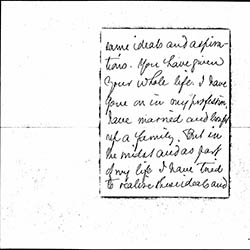 same ideals and aspira-
tions. You have given
your whole life. I have
gone on in my profession,
have married and brought
up a family. But in
the midst and as part
of my life I have tried
to realise these ideals and